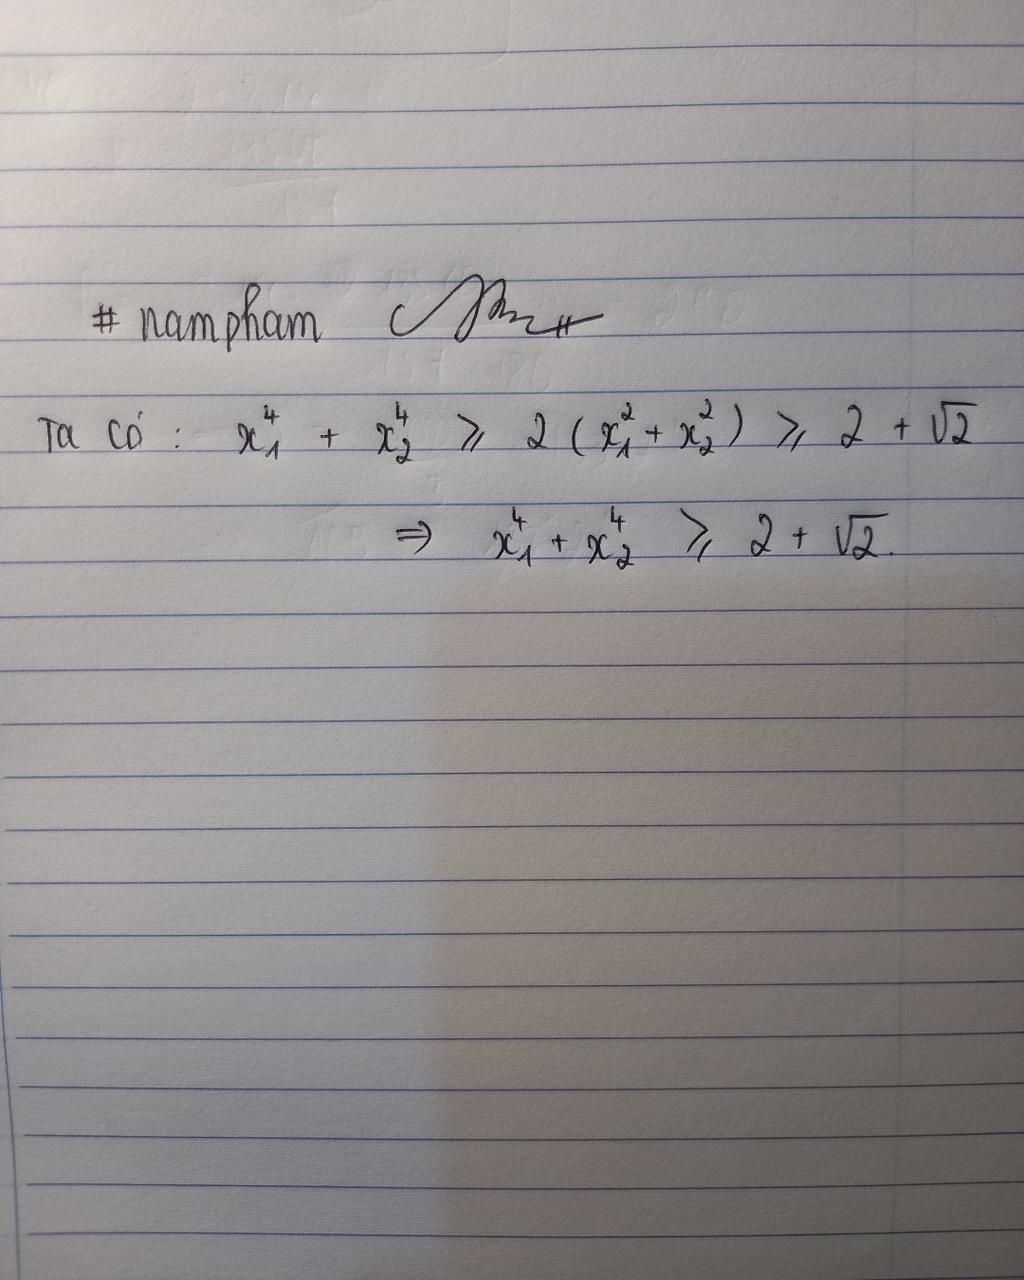 # nampham
Ta có : x₁⁴ + x₂⁴ ⩾ 2 (x₁² + x₂²) ⩾ 2 + √2
⇒ x₁⁴ + x₂⁴ ⩾ 2 + √2.